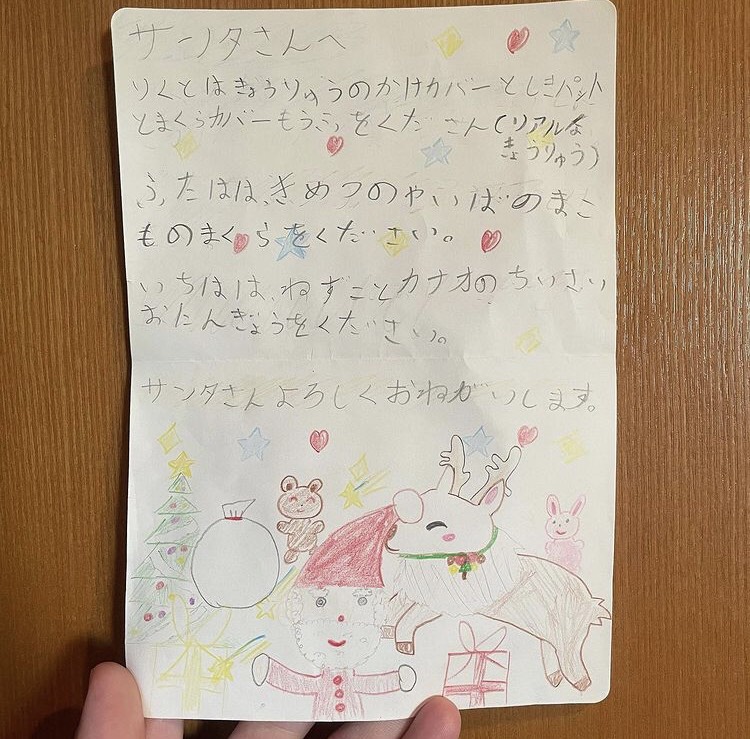 サンタさんへ
りくとはきょうりゅうのかけカバーとしきパット
とまくらカバーもうふをくださん(リアルな
きょうりゅう)
ふたはは、きめつのやいばのまこ
ものまくらをください。
いちはは、ねずことカナオのちいさい
おたんぎょうをください。
サンタさんよろしくおねがいします。